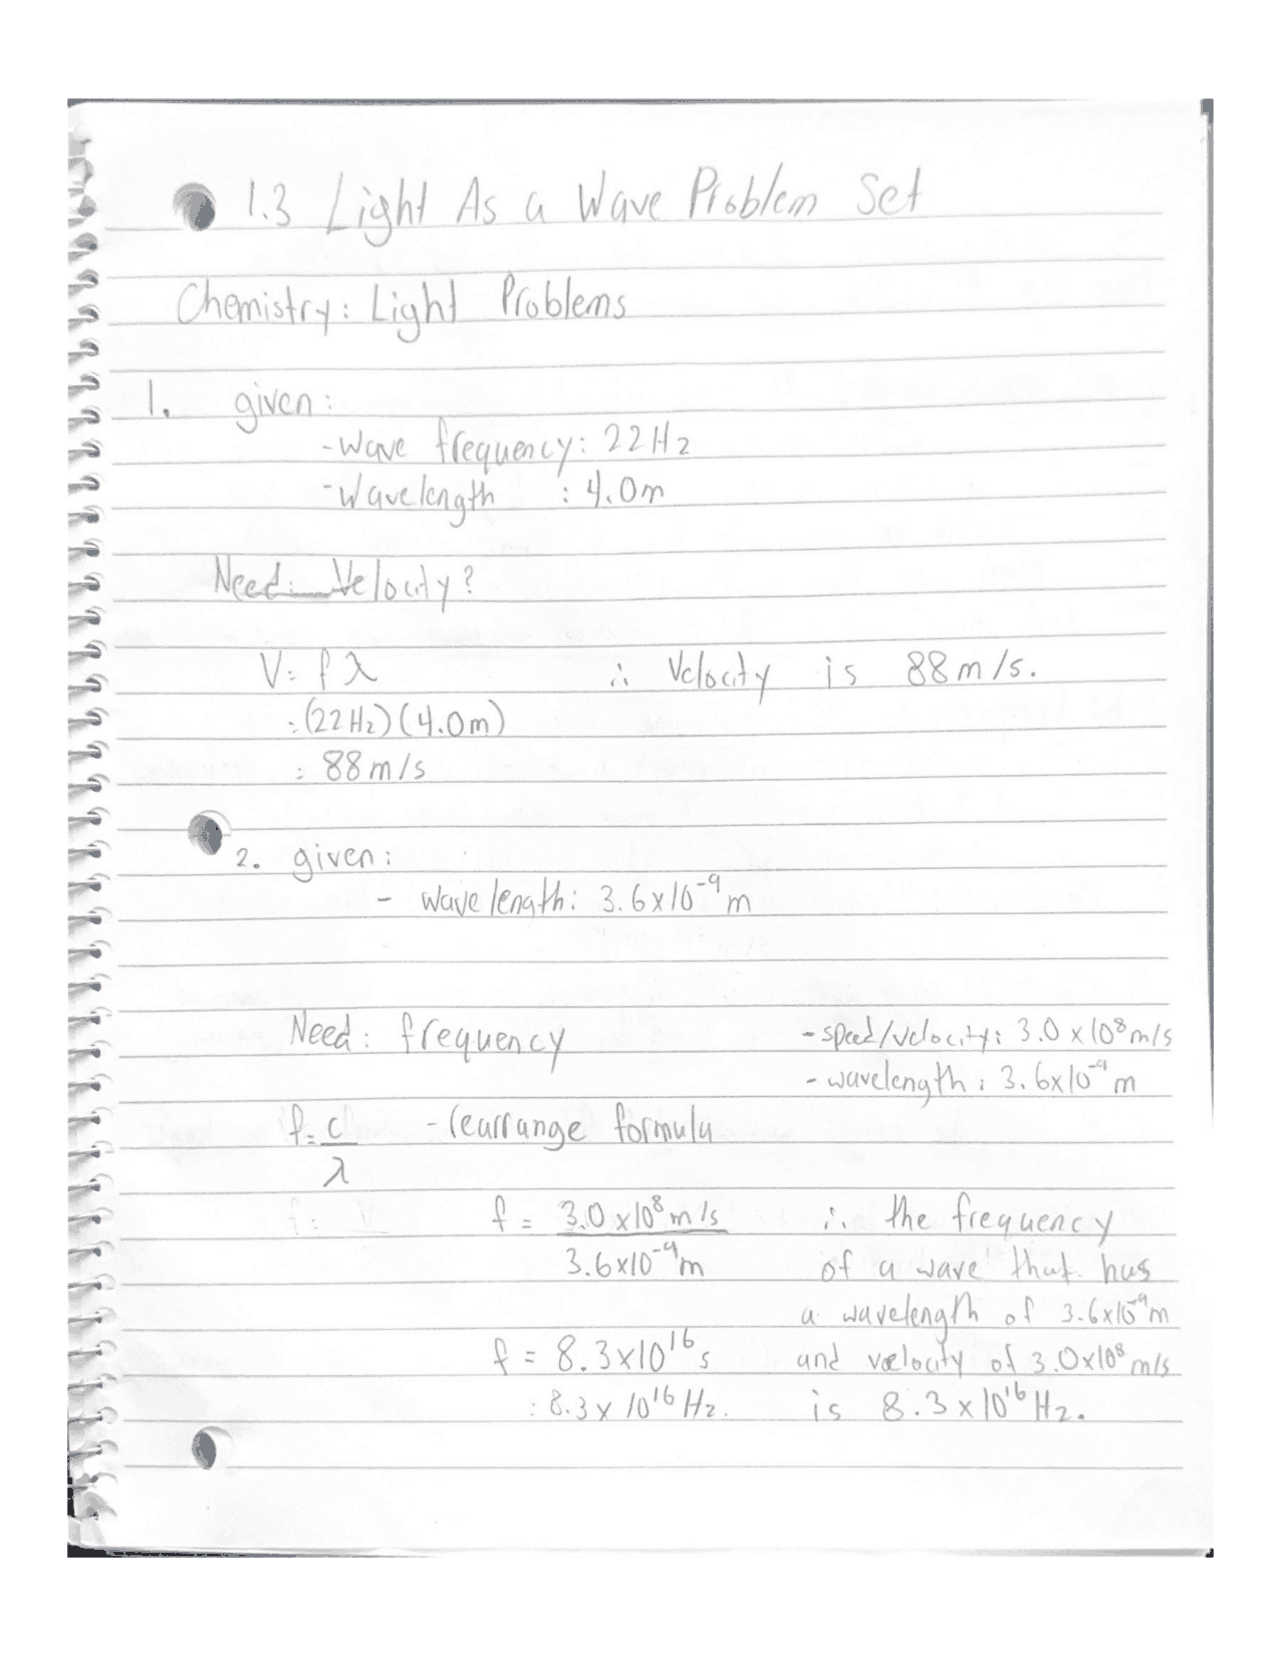 1.3 Light As a Wave Problem Set
Chemistry: Light Problems
1. given:
- Wave frequency: 22 Hz
- Wavelength : 4.0m
Need: Velocity?
V = f λ ∴ Velocity is 88 m/s.
= (22 Hz) (4.0m)
= 88 m/s
2. given:
- wavelength: 3.6x10⁻⁹ m
Need: frequency
- speed/velocity: 3.0 x 10⁸ m/s
- wavelength: 3.6x10⁻⁹ m
f = c/λ - rearrange formula
f = V
f = 3.0 x10⁸ m/s
3.6x10⁻⁹ m
f = 8.3x10¹⁶ s
= 8.3 x 10¹⁶ Hz.
∴ the frequency
of a wave that has
a wavelength of 3.6x10⁻⁹ m
and velocity of 3.0x10⁸ m/s
is 8.3 x 10¹⁶ Hz.